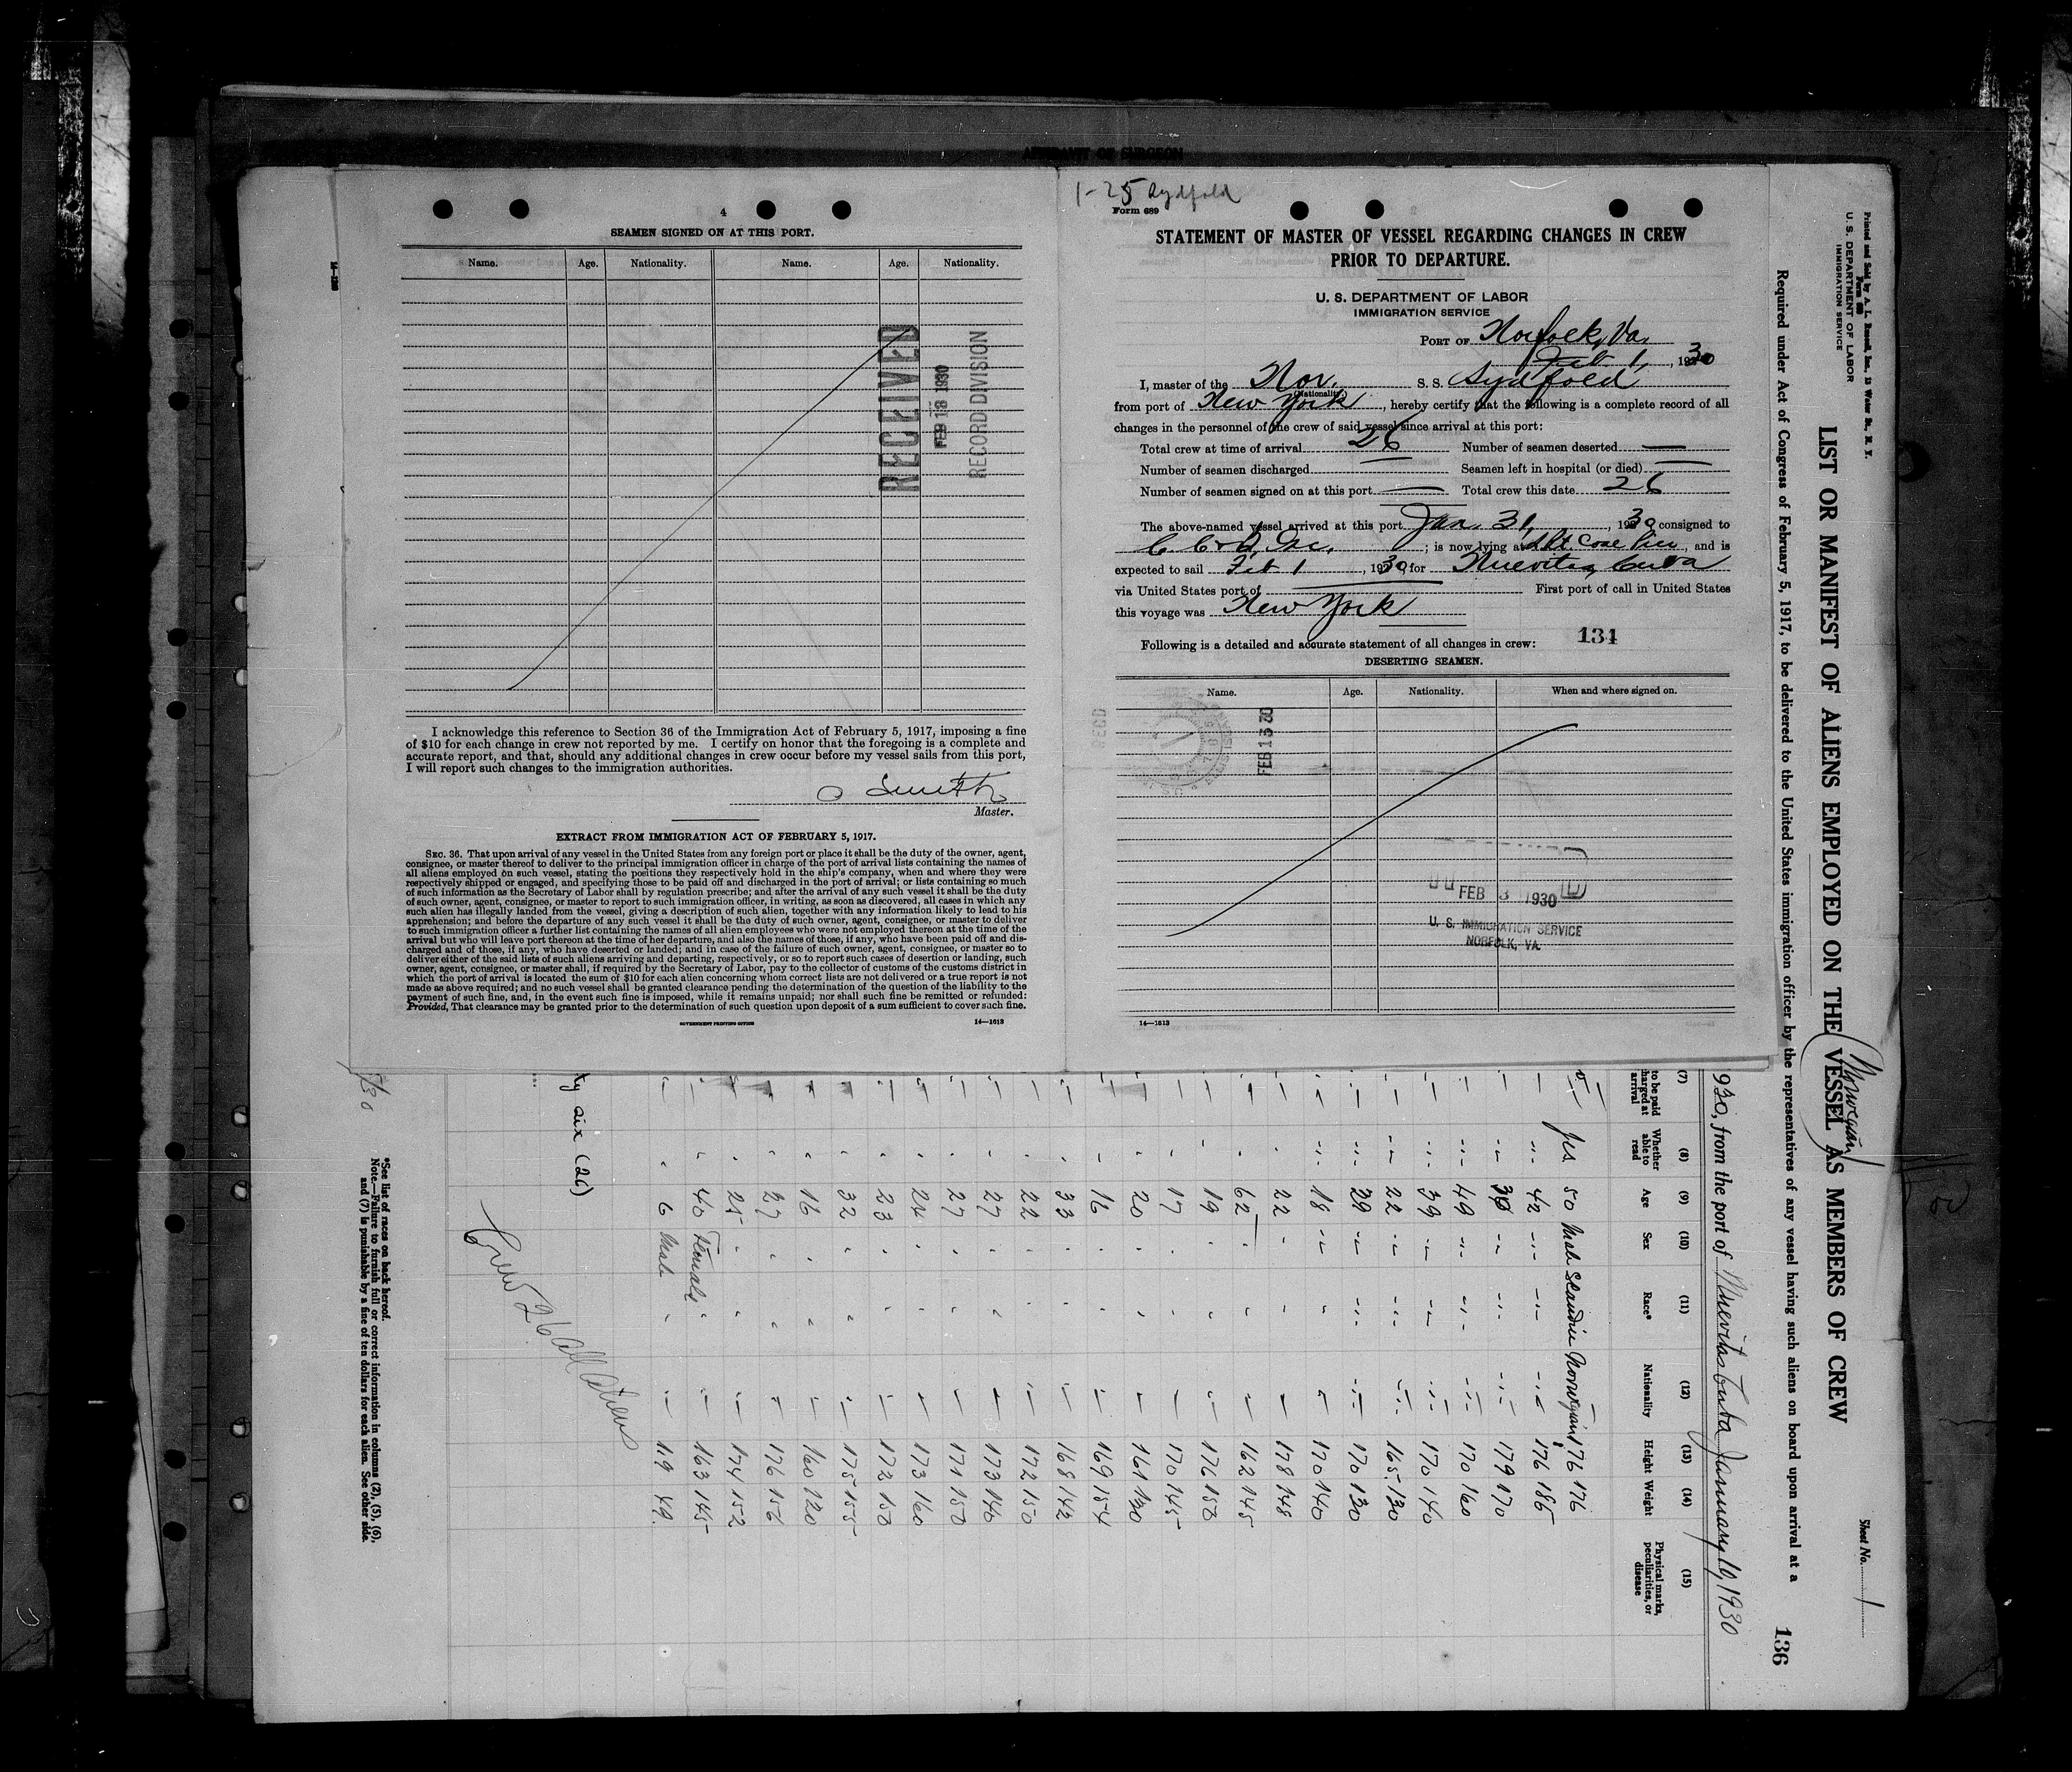 AFFIDAVIT OF SURGEON
4
SEAMEN SIGNED ON AT THIS PORT.
Name. Age. Nationality. Name. Age. Nationality.
RECEIVED
FEB 13 1930
RECORD DIVISION
I acknowledge this reference to Section 36 of the Immigration Act of February 5, 1917, imposing a fine
of $10 for each change in crew not reported by me. I certify on honor that the foregoing is a complete and
accurate report, and that, should any additional changes in crew occur before my vessel sails from this port,
I will report such changes to the immigration authorities.
Master.
EXTRACT FROM IMMIGRATION ACT OF FEBRUARY 5, 1917.
SEC. 36. That upon arrival of any vessel in the United States from any foreign port or place it shall be the duty of the owner, agent,
consignee, or master thereof to deliver to the principal immigration officer in charge of the port of arrival lists containing the names of
all aliens employed on such vessel, stating the positions they respectively hold in the ship's company, when and where they were
respectively shipped or engaged, and specifying those to be paid off and discharged in the port of arrival; or lists containing so much
of such information as the Secretary of Labor shall by regulation prescribe; and after the arrival of any such vessel it shall be the duty
of such owner, agent, consignee, or master to report to such immigration officer, in writing, as soon as discovered, all cases in which any
such alien has illegally landed from the vessel, giving a description of such alien, together with any information likely to lead to his
apprehension; and before the departure of any such vessel it shall be the duty of such owner, agent, consignee, or master to deliver
to such immigration officer a further list containing the names of all alien employees who were not employed thereon at the time of the
arrival but who will leave port thereon at the time of her departure, and also the names of those, if any, who have been paid off and dis-
charged and of those, if any, who have deserted or landed; and in case of the failure of such owner, agent, consignee, or master so to
deliver either of the said lists of such aliens arriving and departing, respectively, or so to report such cases of desertion or landing, such
owner, agent, consignee, or master shall, if required by the Secretary of Labor, pay to the collector of customs of the customs district in
which the port of arrival is located the sum of $10 for each alien concerning whom correct lists are not delivered or a true report is not
made as above required; and no such vessel shall be granted clearance pending the determination of the question of the liability to the
payment of such fine, and, in the event such fine is imposed, while it remains unpaid; nor shall such fine be remitted or refunded:
Provided, That clearance may be granted prior to the determination of such question upon deposit of a sum sufficient to cover such fine.
GOVERNMENT PRINTING OFFICE 14—1613
1-25 Sydfold
Form 689
STATEMENT OF MASTER OF VESSEL REGARDING CHANGES IN CREW
PRIOR TO DEPARTURE.
U. S. DEPARTMENT OF LABOR
IMMIGRATION SERVICE
PORT OF Norfolk, Va.
Feb 1, 1930
I, master of the Nor. S. S. Sydfold,
(Nationality)
from port of New York, hereby certify that the following is a complete record of all
changes in the personnel of the crew of said vessel since arrival at this port:
Total crew at time of arrival 26 Number of seamen deserted —
Number of seamen discharged — Seamen left in hospital (or died) —
Number of seamen signed on at this port — Total crew this date 26
The above-named vessel arrived at this port Jan. 31, 1930 consigned to
Inc. ; is now lying at Pt. Coal Pier, and is
expected to sail Feb 1, 1930, for Nuevitas, Cuba
via United States port of — First port of call in United States
this voyage was New York
Following is a detailed and accurate statement of all changes in crew: 134
DESERTING SEAMEN.
Name. Age. Nationality. When and where signed on.
RECD
FEB 13 30
FEB 3 1930
U. S. IMMIGRATION SERVICE
NORFOLK, VA.
14—1613
Printed and Sold by A. L. Russell, Inc., 13 Water St., N. Y.
U. S. DEPARTMENT OF LABOR
IMMIGRATION SERVICE
Sheet No. 1
LIST OR MANIFEST OF ALIENS EMPLOYED ON THE VESSEL AS MEMBERS OF CREW
Norwegian
Required under Act of Congress of February 5, 1917, to be delivered to the United States immigration officer by the representatives of any vessel having such aliens on board upon arrival at a
136
930, from the port of Nuevitas Cuba January 19, 1930
(7) (8) (9) (10) (11) (12) (13) (14) (15)
to be paid charged at arrival Whether able to read Age Sex Race* Nationality Height Weight Physical marks, peculiarities, or disease
yes 50 Male Scandin Norwegian 176 176
42 176 186
38 179 170
49 170 160
39 170 140
22 165 130
29 170 130
18 170 140
22 178 148
62 162 145
19 176 150
17 170 145
20 161 130
16 169 154
33 168 142
22 172 150
27 173 140
27 171 150
24 173 160
23 172 150
32 175 155
16 160 120
27 176 156
25 174 152
40 Female 163 145
6 Male 119 49
ty six (26)
Crew 26 all aliens
*See list of races on back hereof.
Note.—Failure to furnish full or correct information in columns (2), (5), (6),
and (7) is punishable by a fine of ten dollars for each alien. See other side.